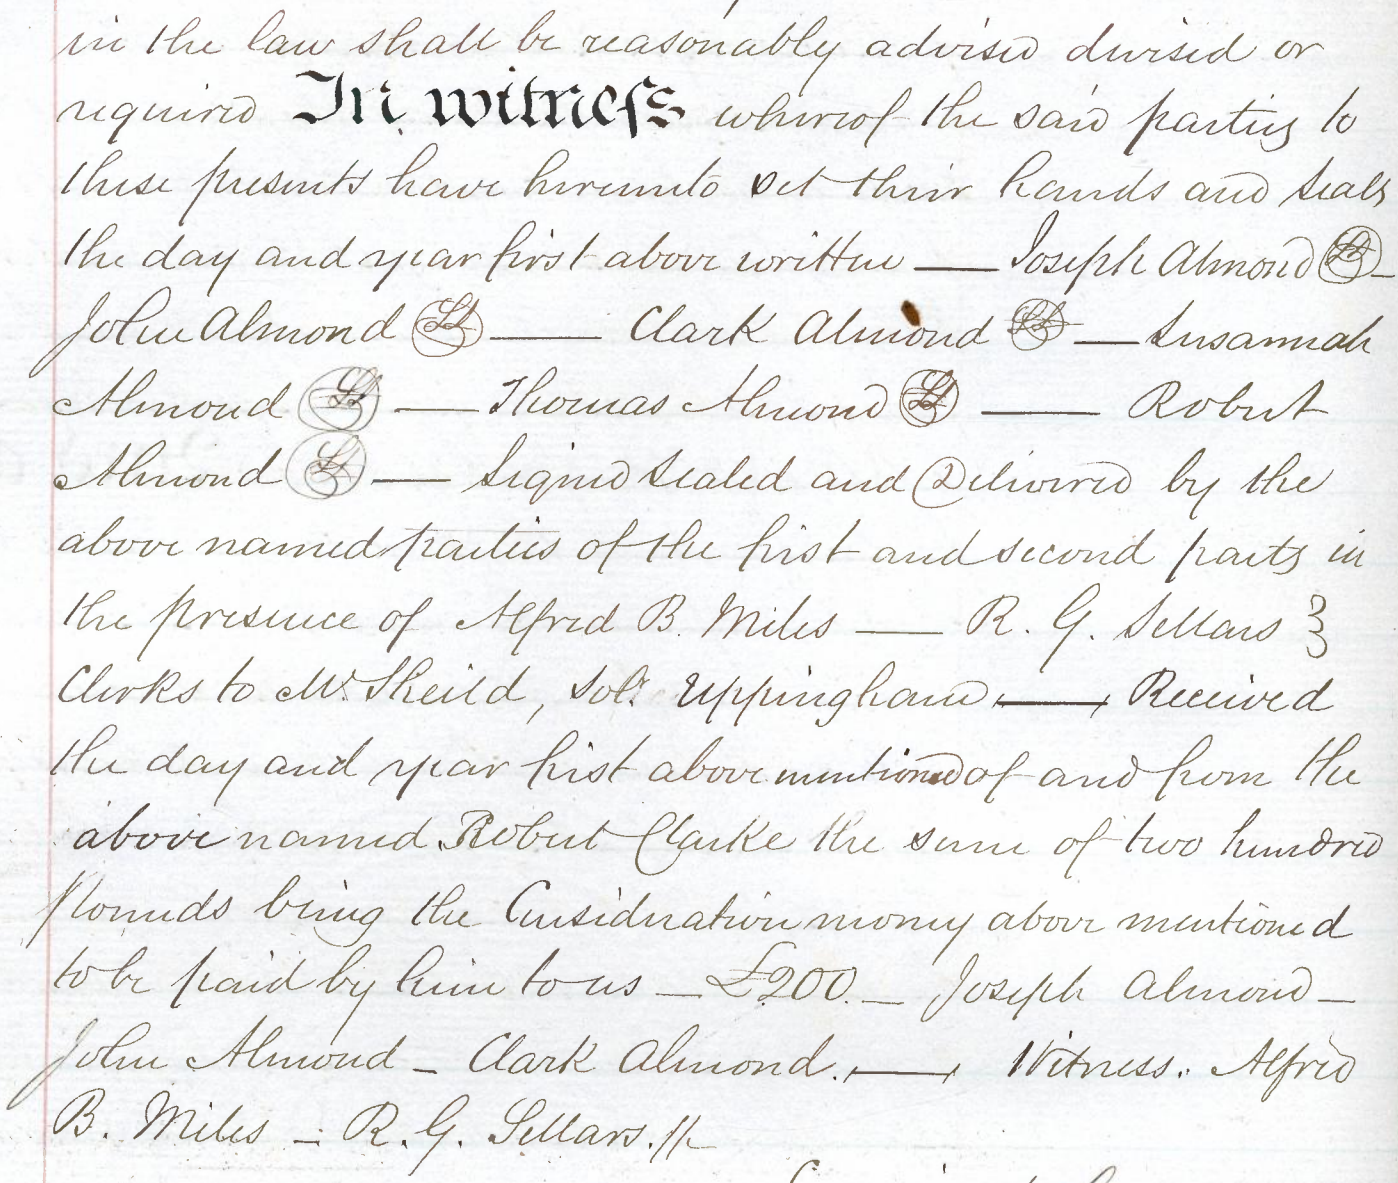 in the law shall be reasonably advised devised or
required In witness whereof the said parties to
these presents have hereunto set their hands and seals
the day and year first above written — Joseph Almond LS —
John Almond LS — Clark Almond LS — Susannah
Almond LS — Thomas Almond LS — Robert
Almond LS — Signed Sealed and Delivered by the
above named parties of the first and second parts in
the presence of Alfred B. Miles — R. G. Sellars }
Clerks to Mr. Sheild, Solr. Uppingham — Received
the day and year first above mentioned of and from the
above named Robert Clarke the sum of two hundred
Pounds being the Consideration money above mentioned
to be paid by him to us — £200. — Joseph Almond —
John Almond — Clark Almond. — Witness. Alfred
B. Miles — R. G. Sellars. //